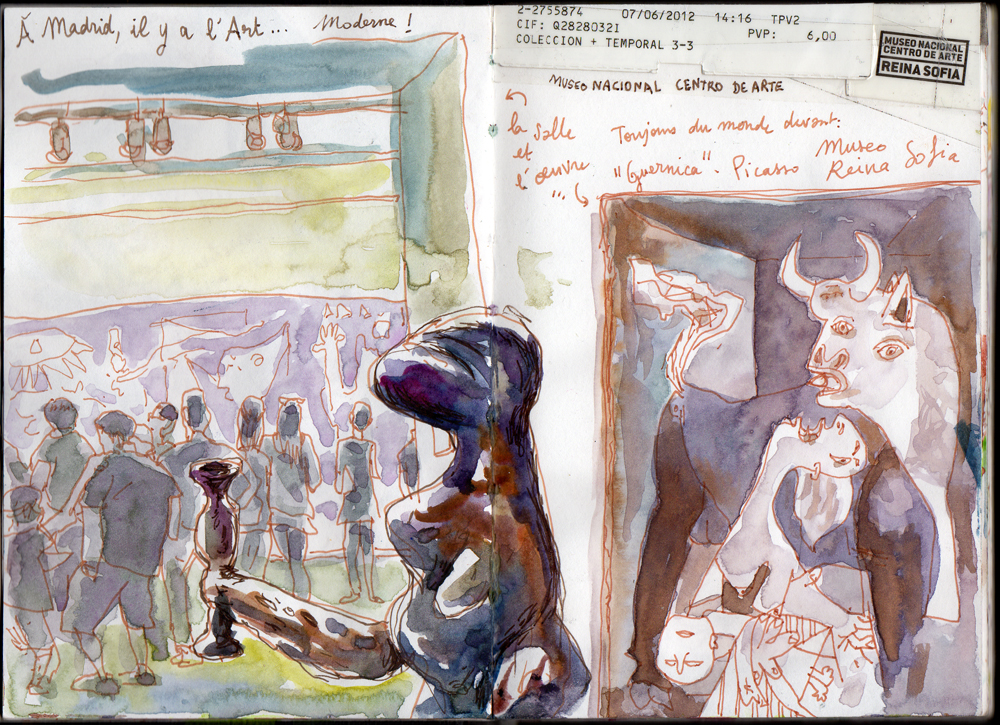 À Madrid, il y a l'Art... Moderne !
2-2755874 07/06/2012 14:16 TPV2
CIF: Q2828032I PVP: 6,00
COLECCION + TEMPORAL 3-3
MUSEO NACIONAL
CENTRO DE ARTE
REINA SOFIA
MUSEO NACIONAL CENTRO DE ARTE
la salle
et
l'œuvre
...
Toujours du monde devant:
"Guernica". Picasso Museo
Reina Sofia